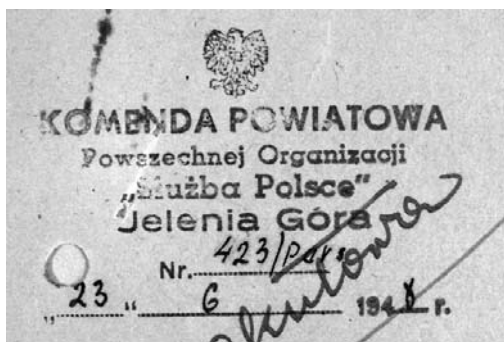 KOMENDA POWIATOWA
Powszechnej Organizacji
„Służba Polsce"
Jelenia Góra
Nr. 423/
„23" 6 1948 r.